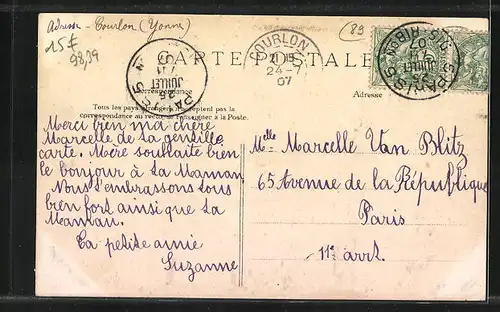 Adresse - Courlon (Yonne)
15€
98,39
(89)
CARTE POSTALE
COURLON
24-7
07
PARIS
25
JUILLET
Correspondance
Adresse
Tous les pays étrangers n'acceptent pas la
correspondance au recto, se renseigner à la Poste.
Merci bien ma chère
Marcelle de ta gentille
carte. Mère souhaite bien
le bonjour à ta Maman.
Nous t'embrassons tous
bien fort ainsi que ta
Maman.
Ta petite amie
Suzanne
Melle Marcelle Van Blitz
65 Avenue de la République
Paris
11e arrt.